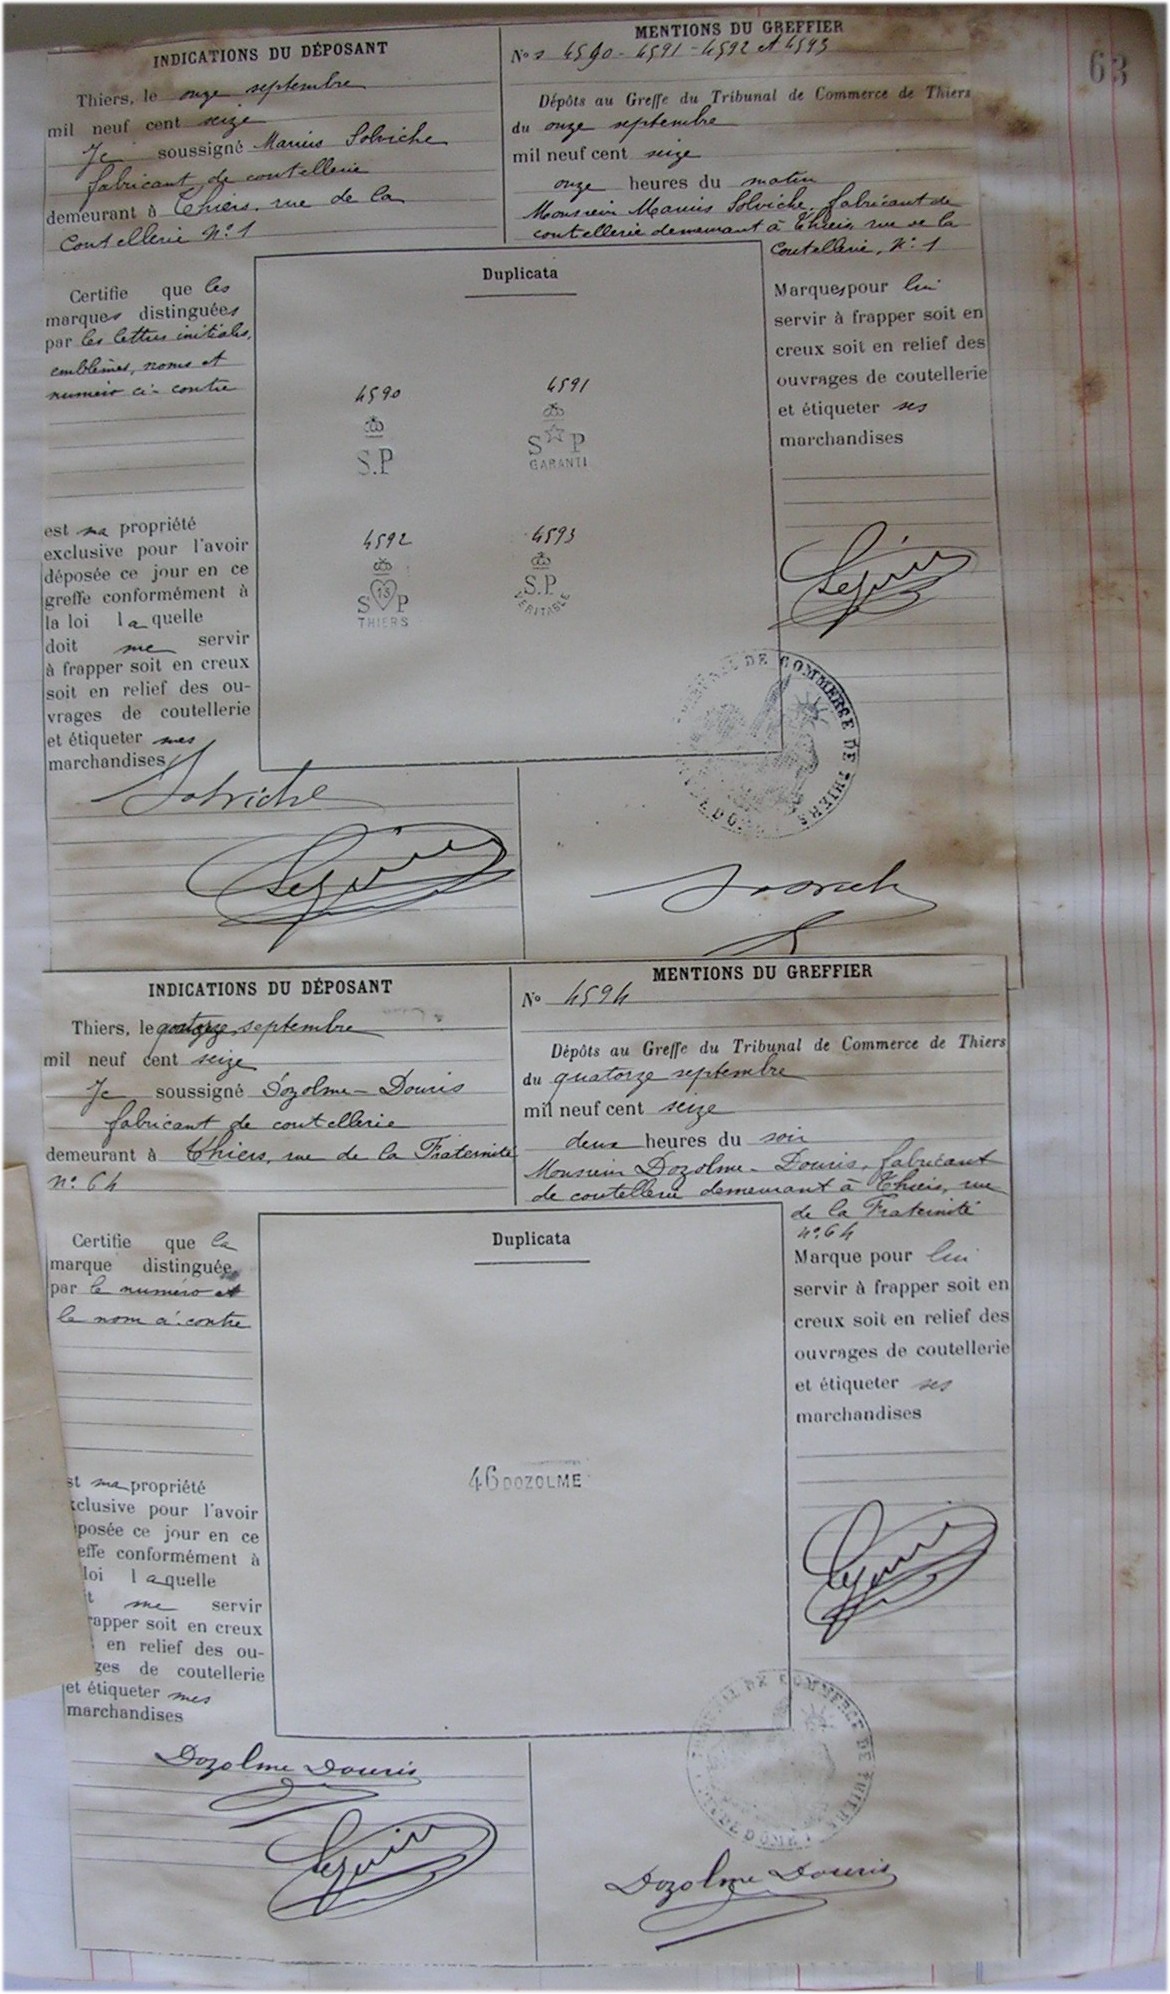 63
INDICATIONS DU DÉPOSANT
Thiers, le onze septembre
mil neuf cent seize
Je soussigné Marius Solviche
fabricant de coutellerie
demeurant à Thiers, rue de la
Coutellerie N° 1
Certifie que les
marques distinguées
par les lettres initiales,
emblèmes, noms et
numéro ci-contre
est ma propriété
exclusive pour l'avoir
déposée ce jour en ce
greffe conformément à
la loi laquelle
doit me servir
à frapper soit en creux
soit en relief des ou-
vrages de coutellerie
et étiqueter mes
marchandises
MENTIONS DU GREFFIER
Nos 4590 - 4591 - 4592 et 4593
Dépôts au Greffe du Tribunal de Commerce de Thiers
du onze septembre
mil neuf cent seize
onze heures du matin
Monsieur Marius Solviche, fabricant de
coutellerie demeurant à Thiers, rue de la
Coutellerie, N° 1
Marques pour lui
servir à frapper soit en
creux soit en relief des
ouvrages de coutellerie
et étiqueter ses
marchandises
Duplicata
4590
S.P
4591
S P
GARANTI
4592
S 13 P
THIERS
4593
S.P.
VÉRITABLE
TRIBUNAL DE COMMERCE DE THIERS
Solviche
INDICATIONS DU DÉPOSANT
Thiers, le quatorze septembre
mil neuf cent seize
Je soussigné Dozolme-Douris
fabricant de coutellerie
demeurant à Thiers, rue de la Fraternité
n° 64
Certifie que la
marque distinguée
par le numéro et
le nom ci-contre
st ma propriété
xclusive pour l'avoir
posée ce jour en ce
effe conformément à
loi laquelle
t me servir
rapper soit en creux
en relief des ou-
ges de coutellerie
et étiqueter mes
marchandises
MENTIONS DU GREFFIER
No 4594
Dépôts au Greffe du Tribunal de Commerce de Thiers
du quatorze septembre
mil neuf cent seize
deux heures du soir
Monsieur Dozolme-Douris, fabricant
de coutellerie demeurant à Thiers, rue
de la Fraternité
n° 64
Marque pour lui
servir à frapper soit en
creux soit en relief des
ouvrages de coutellerie
et étiqueter ses
marchandises
Duplicata
46 DOZOLME
TRIBUNAL DE COMMERCE DE THIERS
PUY DE DOME
Dozolme Douris
Dozolme Douris